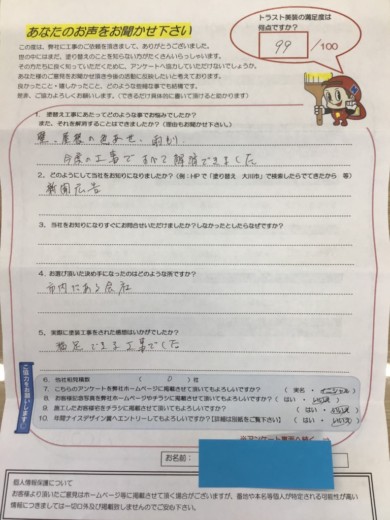 あなたのお声をお聞かせ下さい
トラスト美装の満足度は
何点ですか?
99 /100
この度は、弊社に工事のご依頼を頂きまして、ありがとうございました。
世の中にはまだ、塗り替えのことを知らない方がたくさんいらっしゃいます。
その方たちに良く知っていただくために、アンケートへ協力していただけないでしょうか。
あなた様のご意見をお聞かせ頂き今後の活動に反映したいと考えております。
良かったこと・嬉しかったこと、どのような些細な事でも結構です。
是非、ご協力よろしくお願いします。(できるだけ具体的に書いて頂けると助かります)
1、塗替え工事にあたってどのような事でお悩みでしたか?
また、それを解消することはできましたか?(理由もお聞かせ下さい。)
壁、屋根の色あせ、雨もり
今度の工事ですべて解消できました
2、どのようにして当社をお知りになりましたか?(例:HPで「塗り替え 大川市」で検索したらでてきたから 等)
新聞広告
3、当社をお知りになりすぐにお問合せいただけましたか?しなかったとしたらなぜですか?
4、お選び頂いた決め手になったのはどのような所ですか?
市内にある会社
5、実際に塗装工事をされた感想はいかがでしたか?
満足できる工事でした
ご協力をお願いします!
6、当社相見積数 ( 0 )社
7、こちらのアンケートを弊社ホームページに掲載させて頂いてもよろしいですか? ( 実名 ・ イニシャル )
8、お客様記念写真を弊社ホームページやチラシに掲載させて頂いてもよろしいですか? ( はい ・ いいえ )
9、施工したお客様宅をチラシに掲載させて頂いてもよろしいですか? ( はい ・ いいえ )
10、年間ナイスデザイン賞へエントリーしてもよろしいですか?【詳細は別紙をご覧下さい】 ( はい ・ いいえ )
※アンケート裏面へ続く
お名前:
個人情報保護について
お客様より頂いたご意見はホームページ等に掲載させて頂く場合がございますが、番地や本名等個人が特定される可能性が高い
情報につきましては一切口外及び掲載致しませんのでご安心下さい。